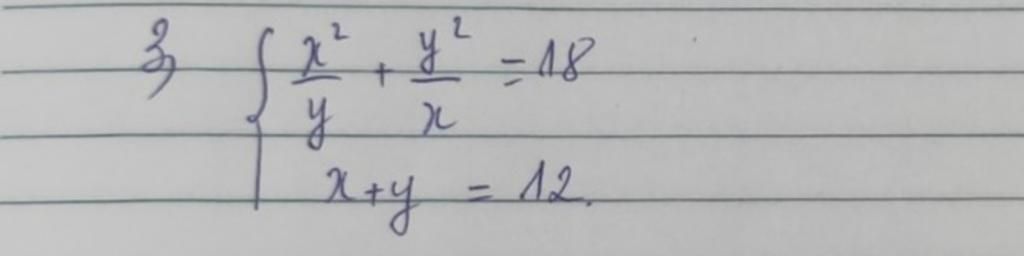 3, { x²/y + y²/x = 18
x + y = 12.